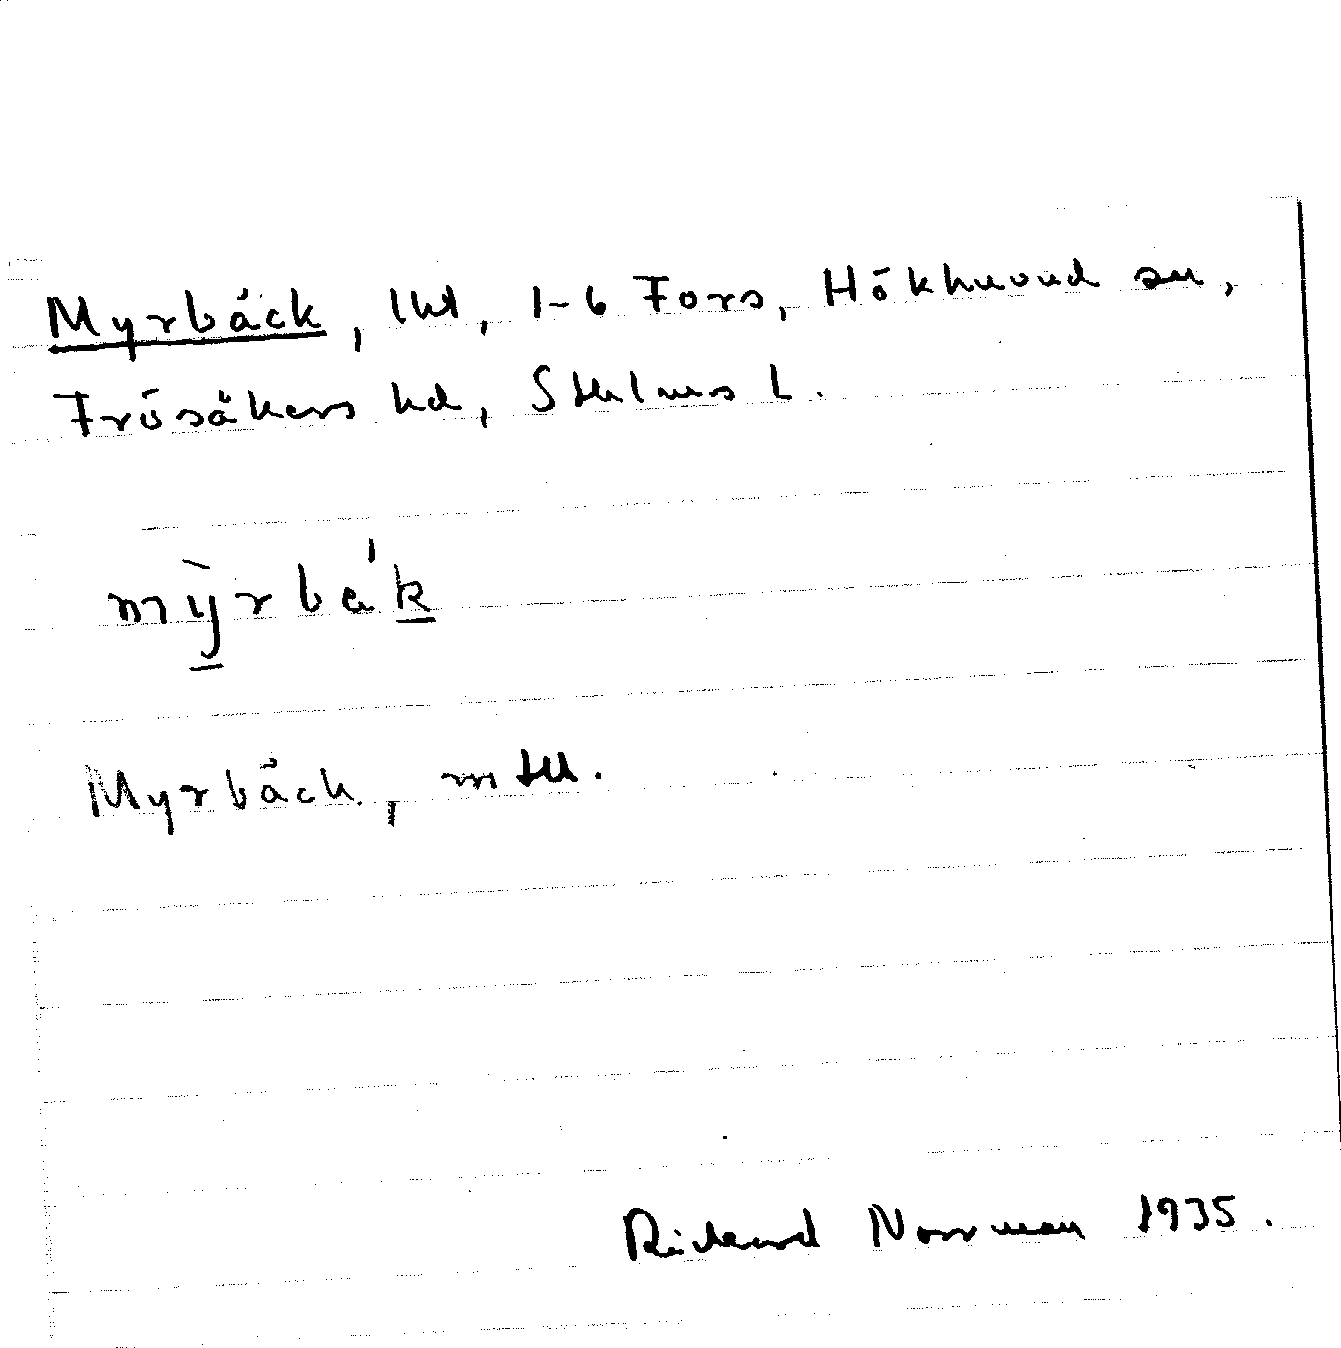 Myrbäck, lht, 1-6 Fors, Hökhuvud sn,
Frösåkers hd, Sthlms l.
mỳrbä́k
Myrbäck, mtll.
Richard Norrman 1935.